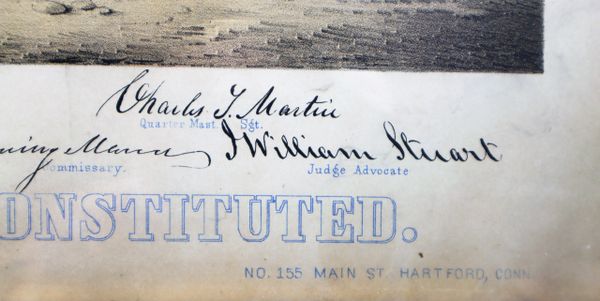 Charles T. Martin
Quarter Mast. Sgt.
Mann J William Stuart
ommissary. Judge Advocate
ONSTITUTED.
NO. 155 MAIN ST. HARTFORD, CONN